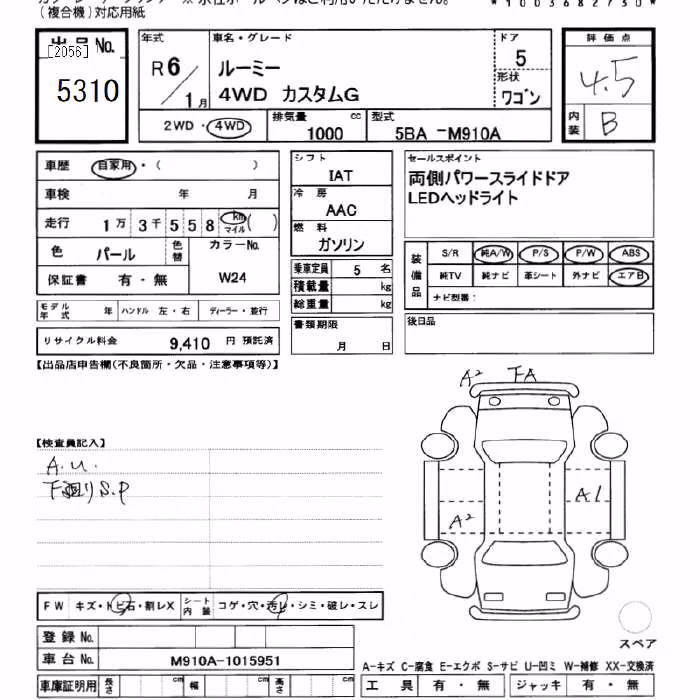 (複合機)対応用紙
出品No.
[2056]
5310
年式
R6/1月
車名・グレード
ルーミー
4WD カスタムG
ドア
5
形状
ワゴン
評価点
4.5
内装
B
2WD・4WD
排気量 1000 cc
型式 5BA-M910A
車歴 自家用・( )
車検 年 月
走行 1万3千558 km マイル ( )
色 パール
色替
カラーNo.
W24
保証書 有・無
シフト
IAT
冷房
AAC
燃料
ガソリン
乗車定員 5 名
積載量 kg
総重量 kg
書類期限
月 日
セールスポイント
両側パワースライドドア
LEDヘッドライト
装備品
S/R 純A/W P/S P/W ABS
純TV 純ナビ 革シート 外ナビ エアB
ナビ型番:
後日品
モデル年式 年 ハンドル 左・右 ディーラー・並行
リサイクル料金 9,410 円 預託済
【出品店申告欄(不良箇所・欠品・注意事項等)】
【検査員記入】
A.U.
下廻りS.P
A2 FA
A1
A2
FW キズ・トビ石・割レX
シート内装 コゲ・穴・汚レ・シミ・破レ・スレ
スペア
登録No.
車台No. M910A-1015951
A-キズ C-腐食 E-エクボ S-サビ U-凹ミ W-補修 XX-交換済
車庫証明用 長さ cm 幅 cm 高さ cm
工具 有・無 ジャッキ 有・無